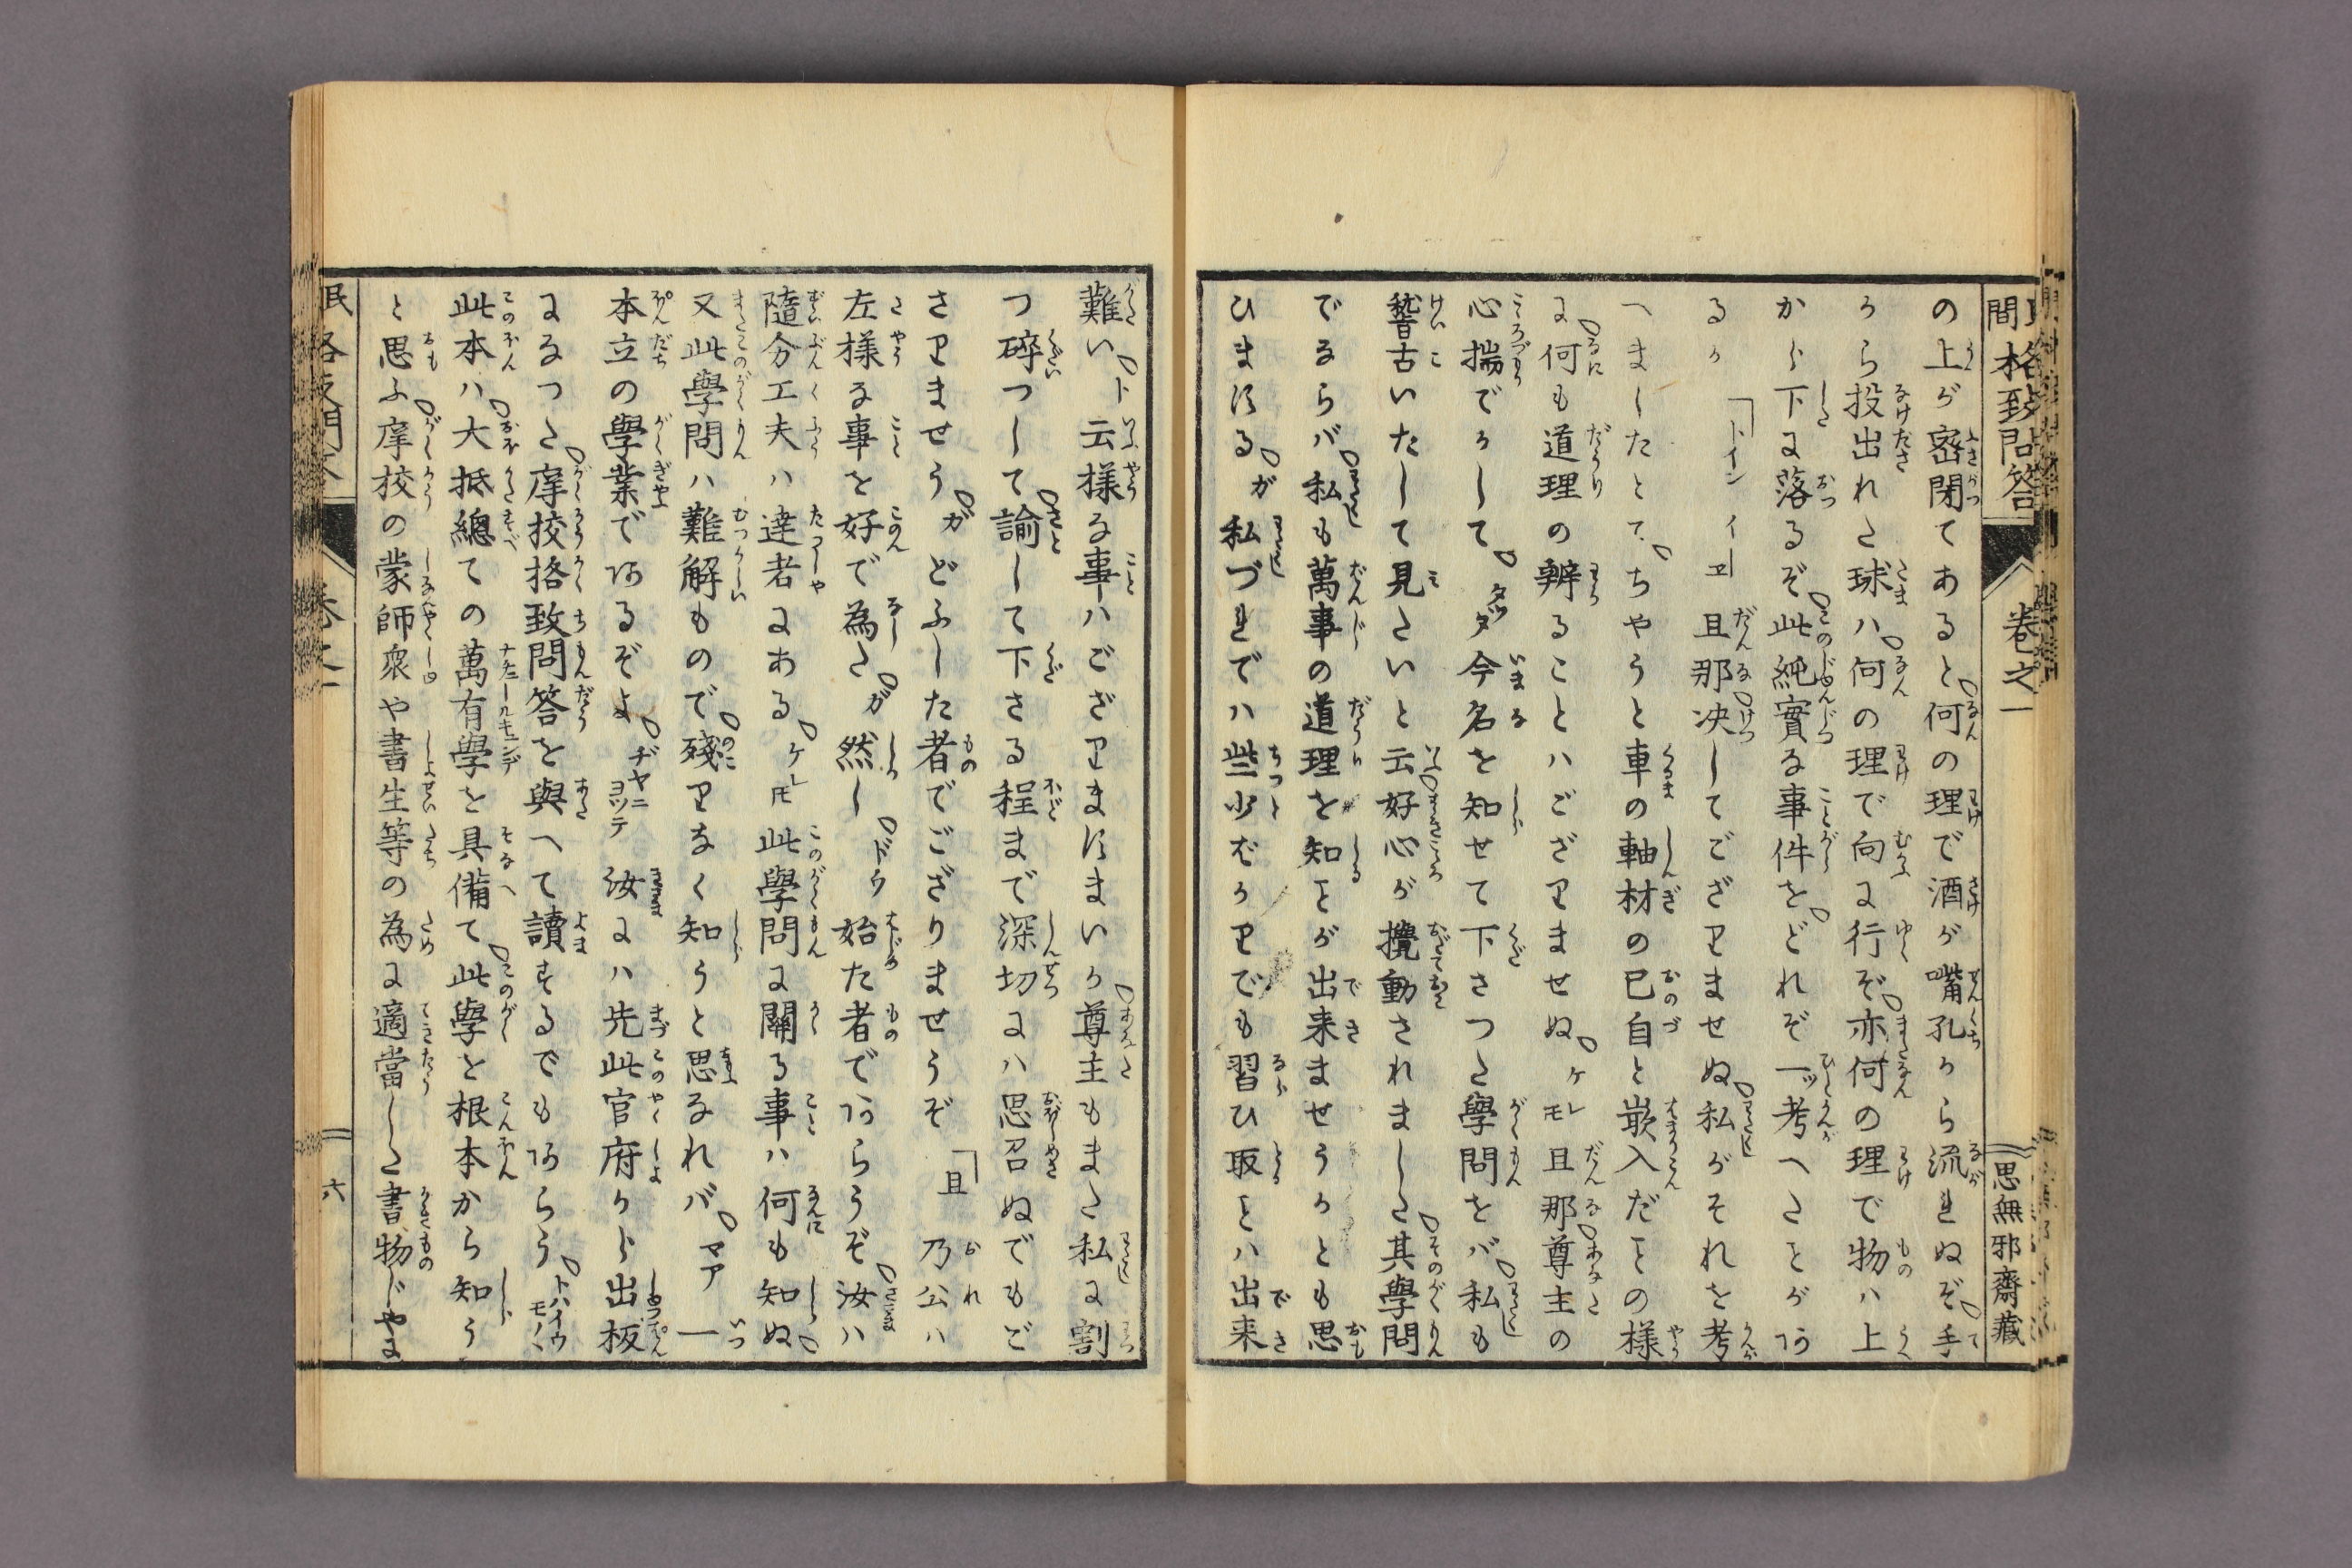 民間格致問答 卷之一 思無邪齋藏
の上が密閉てあると何の理で酒が嘴孔から流れぬぞ手
から投出れた球ハ何の理で向に行ぞ亦何の理で物ハ上
から下に落るぞ此純實な事件をどれぞ一ッ考へたことがあ
るか 「トイン イヱ」 且那决してござりませぬ私がそれを考
へましたとて、ちやうと車の軸材の已自と嵌入だことの様
に何も道理の辨ることハござりませぬケレモ且那尊主の
心揣でかしてタッタ今名を知せて下さつた學問をバ私も
稽古いたして見たいと云好心が攪動されました其學問
でるらバ私も萬事の道理を知ことが出来ませうかとも思
ひまする。ガ私づれでハ些少ばかりでも習ひ取ことハ出来
難いト云様な事ハござりますまいか尊主もまた私に割
つ碎つして諭して下さる程まで深切にハ思召ぬでもご
さりませうガどふした者でござりませうぞ 「且 乃公ハ
左様な事を好で為たガ然しドウ始た者であらうぞ汝ハ
隨分工夫ハ達者にあるケレモ此學問に關る事ハ何も知ぬ
又此學問ハ難解もので殘りなく知うと思なれバマア一
本立の學業であるぞよヂヤニヨツテ汝にハ先此官府から出板
になつた庠校格致問答を與へて讀するでもあらうトハイウモノヽ
此本ハ大抵總ての萬有學を具備て此學を根本から知う
と思ふ庠校の蒙師衆や書生等の為に適當した書物じやに
卷之一 六